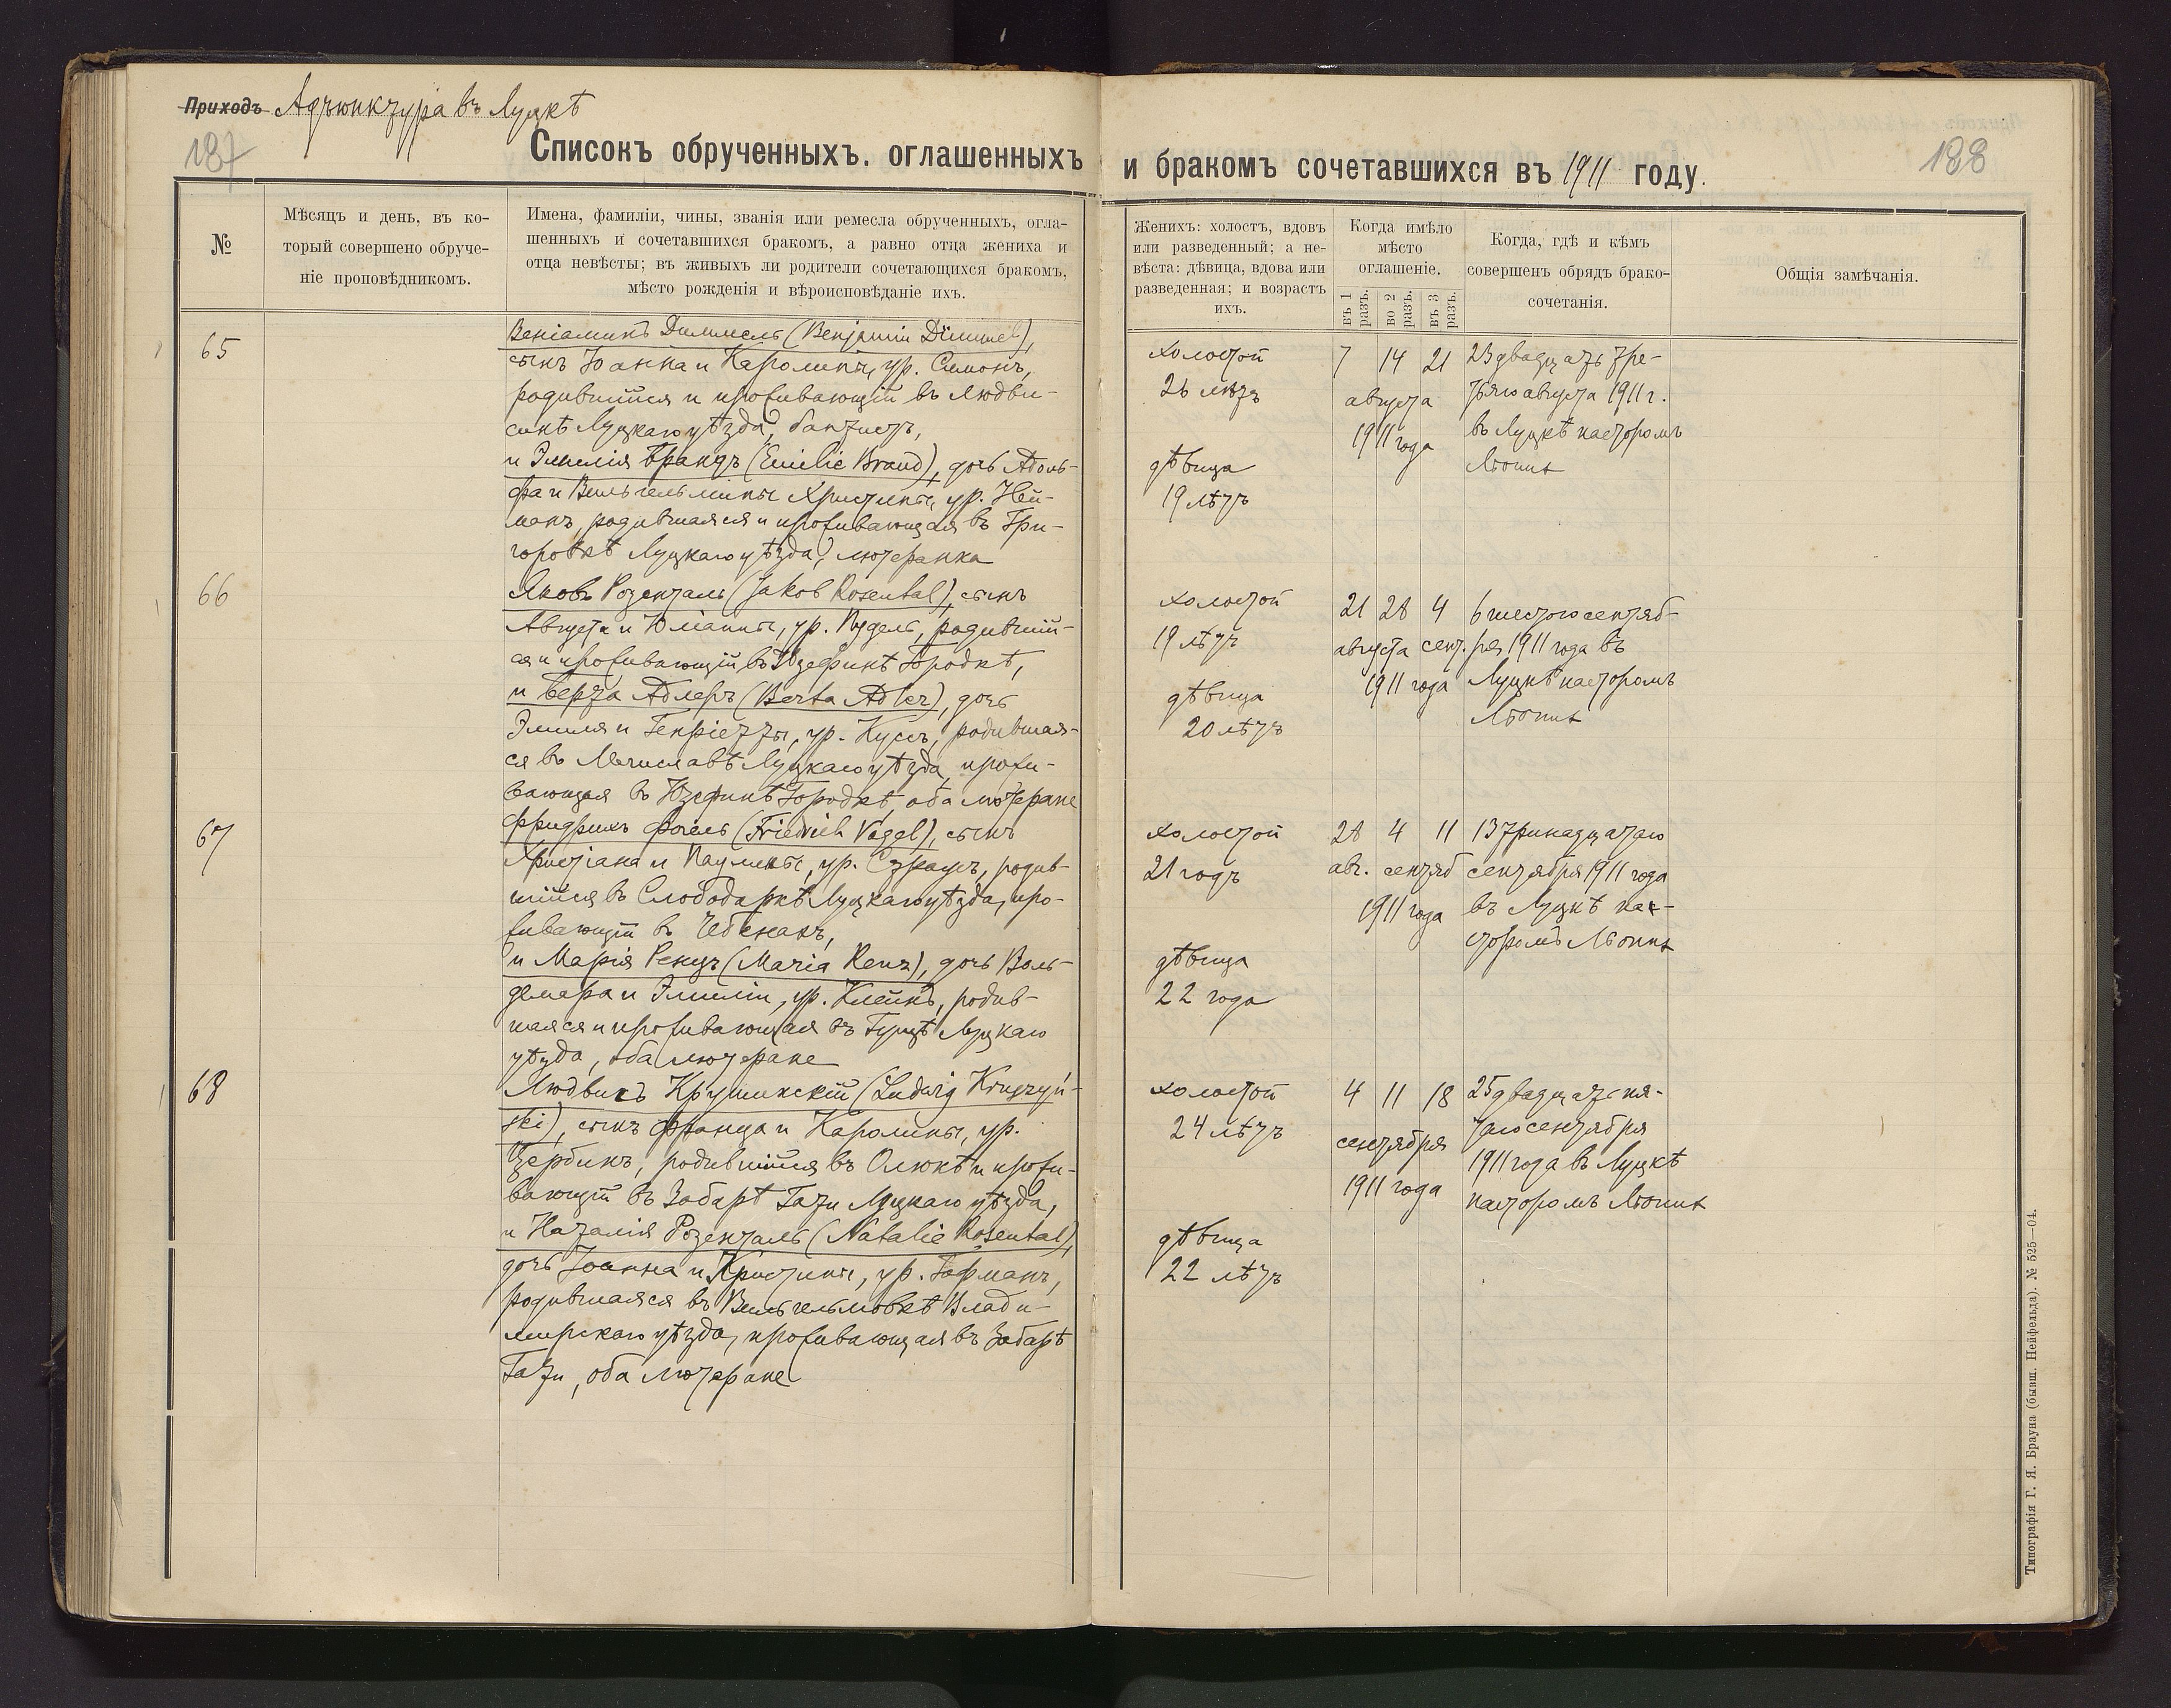 Приходъ Адъюнктура въ Луцкѣ
187
Списокъ обрученныхъ. оглашенныхъ
№
Мѣсяцъ и день, въ ко-
торый совершено обруче-
ніе проповѣдникомъ.
Имена, фамиліи, чины, званія или ремесла обрученныхъ, огла-
шенныхъ и сочетавшихся бракомъ, а равно отца жениха и
отца невѣсты; въ живыхъ ли родители сочетающихся бракомъ,
мѣсто рожденія и вѣроисповѣданіе ихъ.
65
Веніаминъ Диммель (Benjamin Dimmel),
сынъ Іоанна и Каролины, ур. Симонъ,
родившійся и проживающій въ Людви-
синѣ Луцкаго уѣзда, баптистъ,
и Эмилія Брандъ (Emilie Brand), дочь Адоль-
фа и Вильгельмины Христины, ур. Ней-
манъ, родившаяся и проживающая въ Гри-
горовкѣ Луцкаго уѣзда, лютеранка
66
Яковъ Розенталь (Jakob Rosental), сынъ
Августа и Юліанны, ур. Рудель, родивший-
ся и проживающій въ Юзефинѣ Городкѣ,
и Берта Адлеръ (Berta Adler), дочь
Эмиля и Генріетты, ур. Куссъ, родившая-
ся въ Мечиславѣ Луцкаго уѣзда, прожи-
вающая въ Юзефинѣ Городкѣ, оба лютеране
67
Фридрихъ Фогель (Friedrich Vogel), сынъ
Христіана и Паулины, ур. Страусъ, родив-
шійся въ Слободаркѣ Луцкаго уѣзда, про-
живающій въ Чебенахъ,
и Марія Ренцъ (Maria Renz), дочь Воль-
демара и Эмиліи, ур. Клейнъ, родив-
шаяся и проживающая въ Гущѣ Луцкаго
уѣзда, оба лютеране
68
Людвигъ Крушинскій (Ludwig Kruszyń-
ski), сынъ Франца и Каролины, ур.
Цербинъ, родившійся въ Олюкѣ и прожи-
вающій въ Забарѣ Гати Луцкаго уѣзда,
и Наталія Розенталь (Natalie Rosental),
дочь Іоанна и Христины, ур. Гофманъ,
родившаяся въ Вильгельмовкѣ Влади-
мирскаго уѣзда, проживающая въ Забарѣ
Гати, оба лютеране
и бракомъ сочетавшихся въ 1911 году.
188
Женихъ: холостъ, вдовъ
или разведенный; а не-
вѣста: дѣвица, вдова или
разведенная; и возрастъ
ихъ.
Когда имѣло
мѣсто
оглашеніе.
въ 1 разъ.
во 2 разъ.
въ 3 разъ.
Когда, гдѣ и кѣмъ
совершенъ обрядъ брако-
сочетанія.
Общія замѣчанія.
холостой 7 14 21 23 двадцать тре-
26 лѣтъ августа тьяго августа 1911 г.
1911 года въ Луцкѣ пасторомъ
дѣвица
19 лѣтъ
холостой 21 28 4 6 шестого сентяб-
19 лѣтъ августа сент. ря 1911 года въ
1911 года Луцкѣ пасторомъ
дѣвица
20 лѣтъ
холостой 28 4 11 13 тринадцатаго
21 годъ авг. сентяб сентября 1911 года
1911 года въ Луцкѣ пас-
торомъ
дѣвица
22 года
холостой 4 11 18 25 двадцать пя-
24 лѣтъ сентября таго сентября
1911 года въ Луцкѣ
1911 года пасторомъ
дѣвица
22 лѣтъ
Типографія Г. Я. Брауна (бывш. Нейфельда). № 525—04.